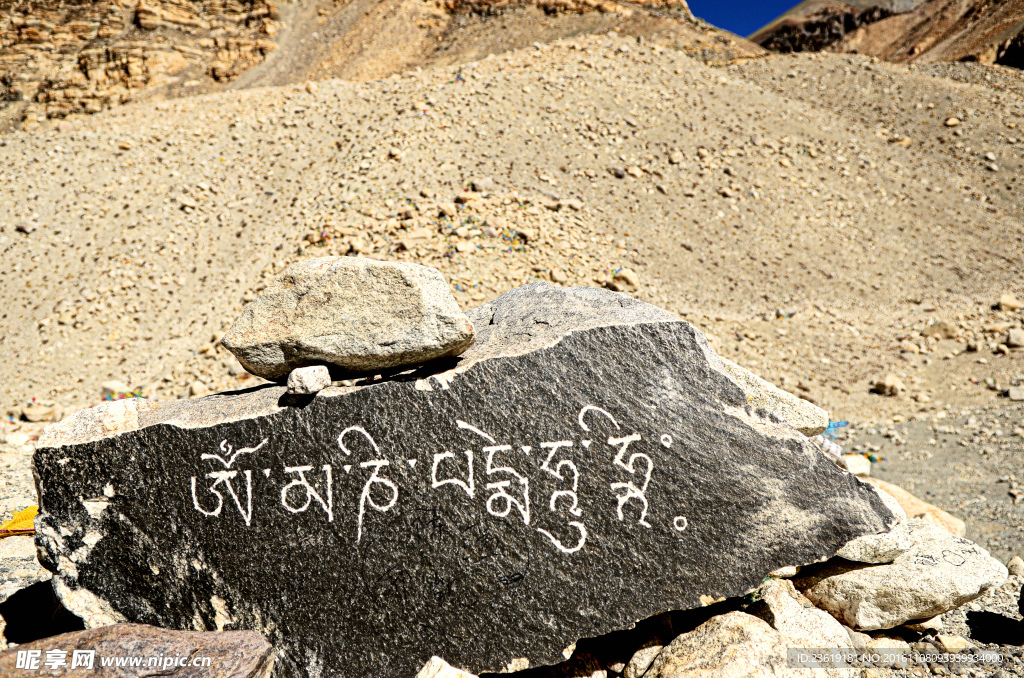 ཨོཾ་མ་ཎི་པདྨེ་ཧཱུྃ༔
昵享网 www.nipic.cn
ID:23619181 NO:20161108093939934000